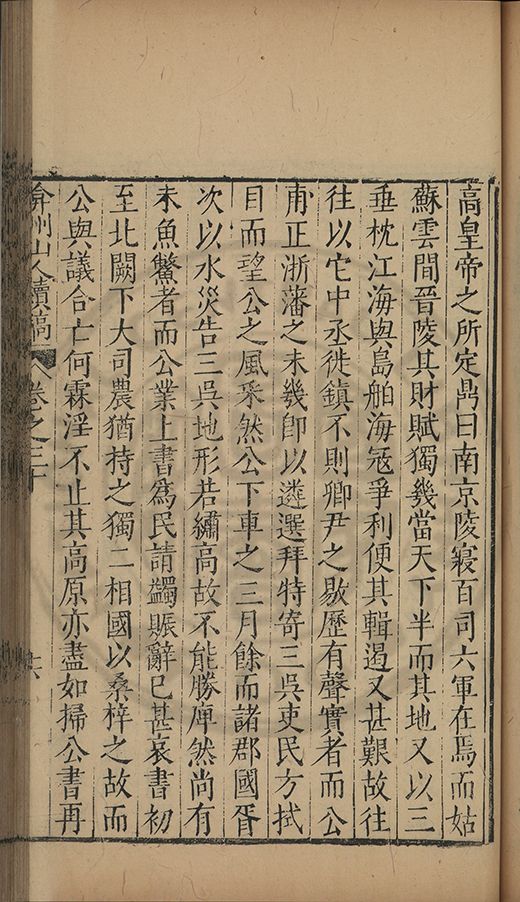 高皇帝之所定鼎曰南京陵寢百司六軍在焉而姑
蘇雲間晉陵其財賦獨幾當天下半而其地又以三
垂枕江海與島舶海冦爭利便其輯遏又甚艱故往
往以它中丞徙鎮不則卿尹之歇歷有聲實者而公
甫正浙藩之未幾卽以遴選拜特寄三吳吏民方拭
目而望公之風采然公下車之三月餘而諸郡國胥
次以水災告三吳地形若繡高故不能勝庳然尚有
未魚鱉者而公業上書爲民請蠲賑辭巳甚哀書初
至北闕下大司農猶持之獨二相國以桑梓之故而
公與議合亡何霖淫不止其高原亦盡如掃公書再
弇州山人續稿 卷之三十 六